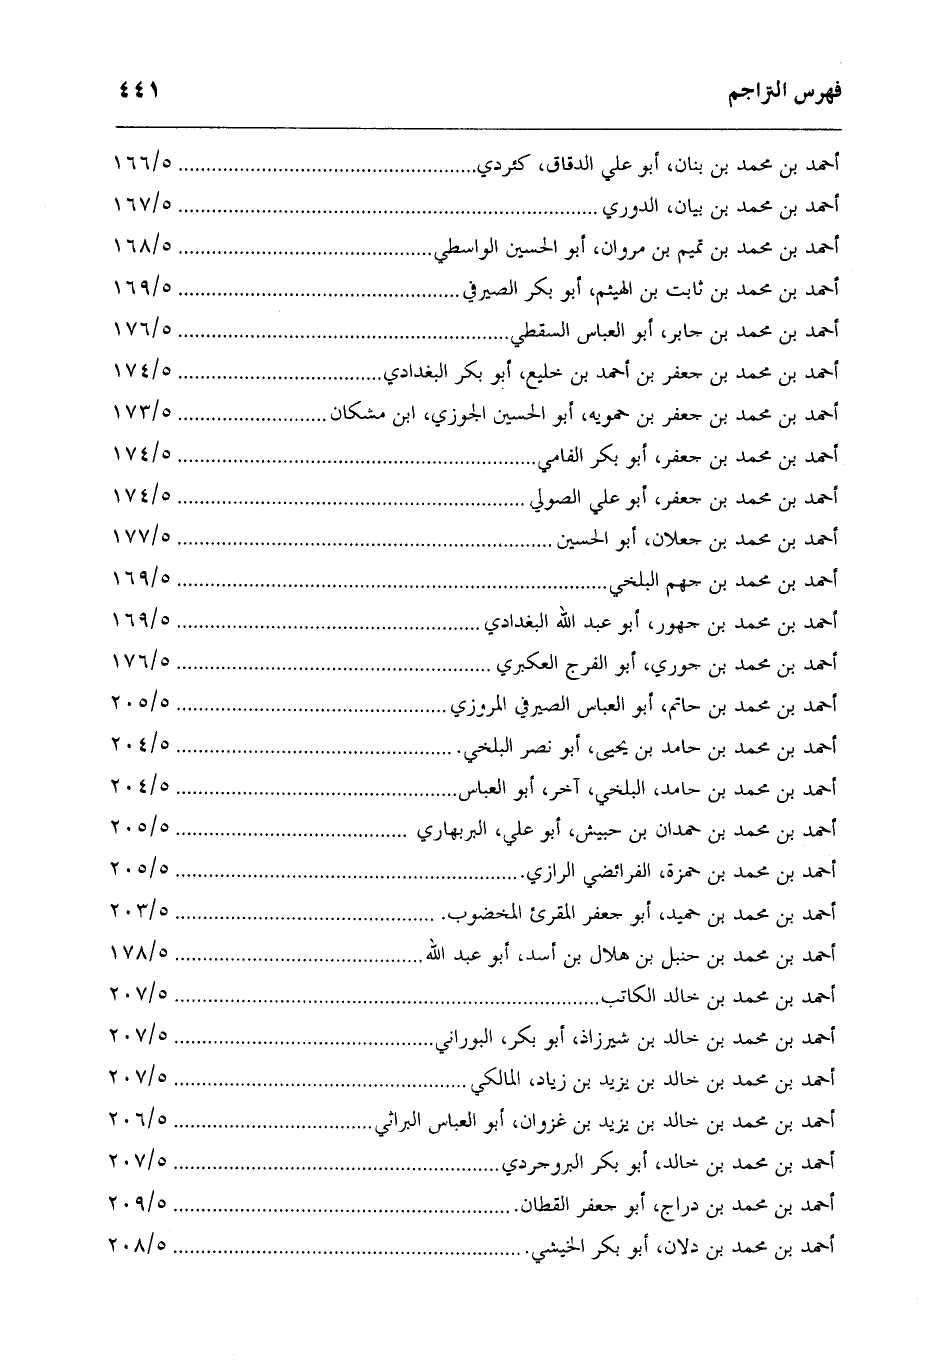 فهرس التراجم ٤٤١
أحمد بن محمد بن بنان، أبو علي الدقاق، كثردي ١٦٦/٥
أحمد بن محمد بن بيان، الدوري ١٦٧/٥
أحمد بن محمد بن تميم بن مروان، أبو الحسين الواسطي ١٦٨/٥
أحمد بن محمد بن ثابت بن الهيثم، أبو بكر الصيرفي ١٦٩/٥
أحمد بن محمد بن جابر، أبو العباس السقطي ١٧٦/٥
أحمد بن محمد بن جعفر بن أحمد بن خليع، أبو بكر البغدادي ١٧٤/٥
أحمد بن محمد بن جعفر بن حمويه، أبو الحسين الجوزي، ابن مشكان ١٧٣/٥
أحمد بن محمد بن جعفر، أبو بكر الفامي ١٧٤/٥
أحمد بن محمد بن جعفر، أبو علي الصولي ١٧٤/٥
أحمد بن محمد بن جعلان، أبو الحسين ١٧٧/٥
أحمد بن محمد بن جهم البلخي ١٦٩/٥
أحمد بن محمد بن جهور، أبو عبد الله البغدادي ١٦٩/٥
أحمد بن محمد بن جوري، أبو الفرج العكبري ١٧٦/٥
أحمد بن محمد بن حاتم، أبو العباس الصيرفي المروزي ٢٠٥/٥
أحمد بن محمد بن حامد بن يحيى، أبو نصر البلخي ٢٠٤/٥
أحمد بن محمد بن حامد، البلخي، آخر، أبو العباس ٢٠٤/٥
أحمد بن محمد بن حمدان بن حبيش، أبو علي، البربهاري ٢٠٥/٥
أحمد بن محمد بن حمزة، الفرائضي الرازي ٢٠٥/٥
أحمد بن محمد بن حميد، أبو جعفر المقرئ المخضوب ٢٠٣/٥
أحمد بن محمد بن حنبل بن هلال بن أسد، أبو عبد الله ١٧٨/٥
أحمد بن محمد بن خالد الكاتب ٢٠٧/٥
أحمد بن محمد بن خالد بن شيرزاذ، أبو بكر، البوراني ٢٠٧/٥
أحمد بن محمد بن خالد بن يزيد بن زياد، المالكي ٢٠٧/٥
أحمد بن محمد بن خالد بن يزيد بن غزوان، أبو العباس البراثي ٢٠٦/٥
أحمد بن محمد بن خالد، أبو بكر البروجردي ٢٠٧/٥
أحمد بن محمد بن دراج، أبو جعفر القطان ٢٠٩/٥
أحمد بن محمد بن دلان، أبو بكر الخيشي ٢٠٨/٥